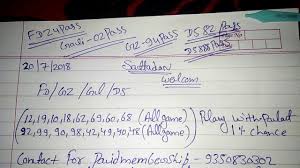 FD24Pass
Gali-02Pass
GZ-94Pass
DS 82 Pass
DS 88 Pass
20/7/2018
welcom
FD/GZ/Gul/DS
(12,19,10,18,62,69,60,68 (All game)
92,99,90,98,42,49,40,48 (All game)
Play with
1 % chance
Contact For Paidmembership - 9350830302